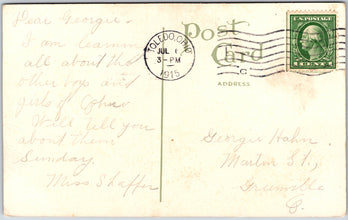 Dear Georgie -
I am learning
all about the
other boys and
girls of Ohio
Will tell you
about them
Sunday.
Miss Shaffer
Post
Card
ADDRESS
TOLEDO, OHIO
JUL 1
3-PM
1915
C
U.S. POSTAGE
1 CENT 1
Georgie Hahn.
Martin St.,
Greenville
O.